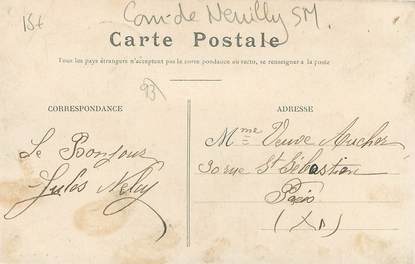 15€
Com. de Neuilly SM
Carte Postale
Tous les pays étrangers n'acceptent pas la corres pondance au recto, se renseigner à la poste
93
CORRESPONDANCE
ADRESSE
Le Bonjour
Jules
Mme Veuve
30 rue St Sébastien
Paris